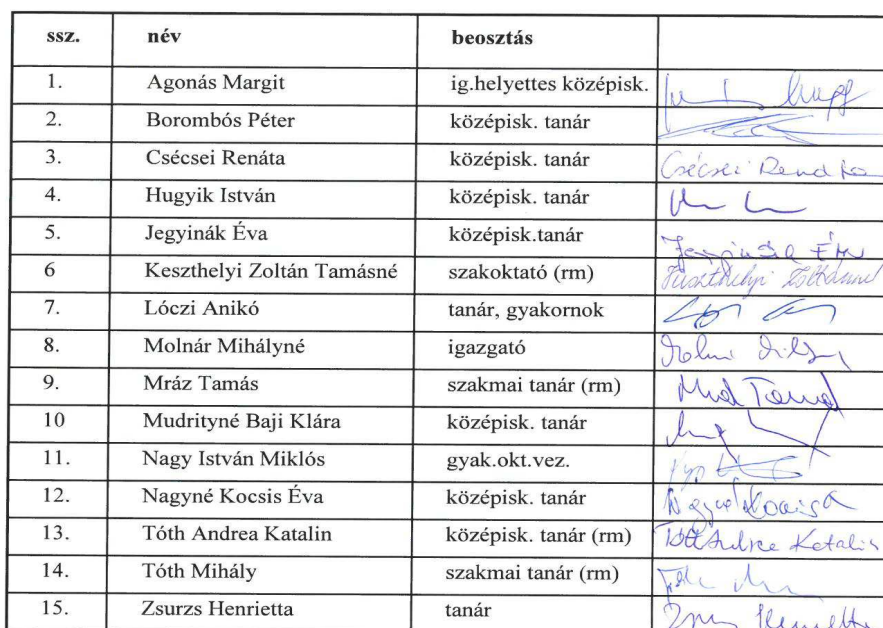 ssz. név beosztás
1. Agonás Margit ig.helyettes középisk.
2. Borombós Péter középisk. tanár
3. Csécsei Renáta középisk. tanár Csécsei Renáta
4. Hugyik István középisk. tanár
5. Jegyinák Éva középisk.tanár Jegyinák Éva
6 Keszthelyi Zoltán Tamásné szakoktató (rm) Keszthelyi Zoltánné
7. Lóczi Anikó tanár, gyakornok
8. Molnár Mihályné igazgató
9. Mráz Tamás szakmai tanár (rm) Mráz Tamás
10 Mudrityné Baji Klára középisk. tanár
11. Nagy István Miklós gyak.okt.vez.
12. Nagyné Kocsis Éva középisk. tanár
13. Tóth Andrea Katalin középisk. tanár (rm) Tóth Andrea Katalin
14. Tóth Mihály szakmai tanár (rm)
15. Zsurzs Henrietta tanár